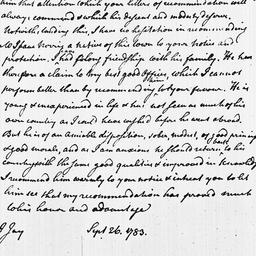 him that attention which your letters of recommendation will
always command & which his Defeat and modesty deserve.
Notwithstanding this, I have no hesitation in recommending
Mr Isaac a native of this Town to your notice and
protection. I had a long friendship with his family. He has
therefore a claim to my best good offices, which I cannot
perform better than by recommending him to your favour. He is
young & unexperienced in life & has not seen as much of his
own country as I could have wished before he went abroad.
But he is of an amiable disposition, sober, modest, of good principles
& good morals, and as I am anxious he should return back to his
country with the same good qualities & improved in knowledge
I recommend him warmly to your notice & intreat you to let
him see that my recommendation has proved much
to his honor and advantage
J Jay Sept 26. 1783.